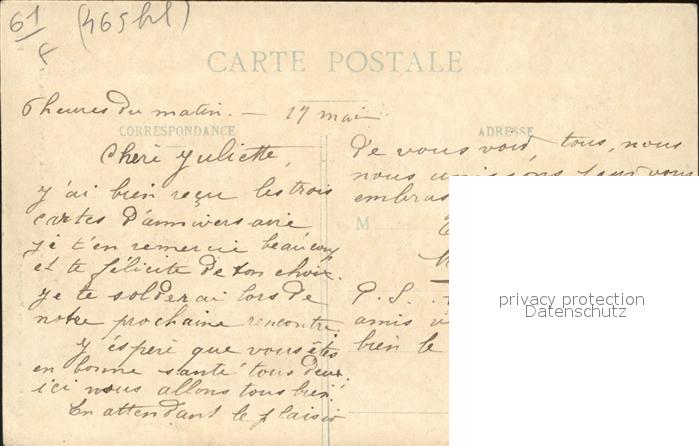 61
F
(465hl)
CARTE POSTALE
6 heures du matin. — 17 mai
CORRESPONDANCE
Cheri Juliette,
J'ai bien reçu les trois
cartes d'anniversaire
je t'en remercie beaucoup
et te félicite de ton choix.
Je te solderai lors de
notre prochaine rencontre.
J'espère que vous êtes
en bonne santé tous deux
ici nous allons tous bien.
En attendant le plaisir
ADRESSE
De vous voir, tous, nous
nous unissons pour vous
embras
M
P. S.
amis
bien le
privacy protection
Datenschutz